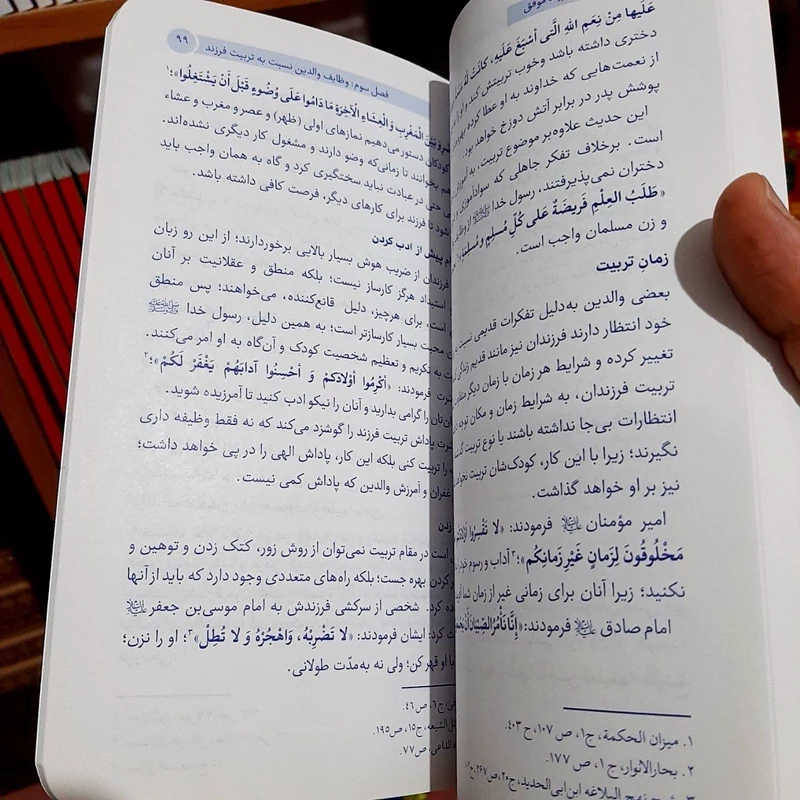 موفق
عَلَيها مِنْ نِعَمِ اللهِ الَّتى أَسْبَغَ عَلَيهِ، كانَتْ لَهُ
دختری داشته باشد وخوب تربیتش کند و
از نعمت‌هایی که خداوند به او عطا کرده
پوشش پدر در برابر آتش دوزخ خواهد بود.
این حدیث علاوه‌بر موضوع تربیت، به
است. برخلاف تفکر جاهلی که سوادآموزی
دختران نمی‌پذیرفتند، رسول خدا ﷺ
«طَلَبُ العِلْمِ فَريضَةٌ عَلى كُلِّ مُسلِمٍ وَ مُسلِمَة
و زن مسلمان واجب است.
زمانِ تربیت
بعضی والدین به‌دلیل تفکرات قدیمی نسبت
خود انتظار دارند فرزندان نیز مانند قدیم زندگی
تغییر کرده و شرایط هر زمان با زمان دیگر
تربیت فرزندان، به شرایط زمان و مکان توجه
انتظارات بی‌جا نداشته باشند یا نوع تربیت
نگیرند؛ زیرا با این کار، کودک‌شان تربیت
نیز بر او خواهد گذشت.
امیر مؤمنان علیه‌السلام فرمودند: «لا تَقْسِروا
مَخْلُوقُونَ لِزَمانٍ غَيْرِ زَمانِكُم»؛۳ آداب و رسوم
نکنید؛ زیرا آنان برای زمانی غیر از زمان شما
امام صادق علیه‌السلام فرمودند: «إِنَّا نَأْمُرُ الصِّبْيانَ أَنْ
۱. میزان الحکمة، ج۱، ص ۱۰۷، ح ۴۰۳.
۲. بحارالانوار، ج ۱، ص ۱۷۷.
۳. نهج البلاغه ابن‌ابی‌الحدید، ج۲۰، ص۲۶۷،
فصل سوم: وظایف والدین نسبت به تربیت فرزند ۹۹
بَيْنَ الْمَغْرِبِ وَ الْعِشاءِ الْآخِرَةِ ما دَامُوا عَلَى وُضُوءٍ قَبْلَ أَنْ يَشْتَغِلُوا»؛۱
کودکان دستور می‌دهیم نمازهای اولی (ظهر) و عصر و مغرب و عشاء
بخوانند تا زمانی‌که وضو دارند و مشغول کار دیگری نشده‌اند.
حتی در عبادت نباید سختگیری کرد و گاه به همان واجب باید
شود تا فرزند برای کارهای دیگر، فرصت کافی داشته باشد.
پیش از ادب کردن
فرزندان از ضریب هوش بسیار بالایی برخوردارند؛ از این رو زبان
استبداد هرگز کارساز نیست؛ بلکه منطق و عقلانیت بر آنان
است، برای هرچیز، دلیل قانع‌کننده، می‌خواهند؛ پس منطق
محبت بسیار کارسازتر است؛ به همین دلیل، رسول خدا ﷺ
به تکریم و تعظیم شخصیت کودک و آن‌گاه به او امر می‌کنند.
فرمودند: «أَكْرِمُوا أَوْلادَكمْ وَ أَحْسِنُوا آدابَهُمْ يَغْفَرْ لَكُمْ»؛۲
تان را گرامی بدارید و آنان را نیکو ادب کنید تا آمرزیده شوید.
پاداش تربیت فرزند را گوشزد می‌کند که نه فقط وظیفه داری
را تربیت کنی بلکه این کار، پاداش الهی را در پی خواهد داشت؛
غفران و آمرزش والدین که پاداش کمی نیست.
زدن
است در مقام تربیت نمی‌توان از روش زور، کتک زدن و توهین و
کردن بهره جست؛ بلکه راه‌های متعددی وجود دارد که باید از آنها
کرد. شخصی از سرکشی فرزندش به امام موسی‌بن جعفر علیه‌السلام
کرد؛ ایشان فرمودند: «لا تَضْرِبْهُ، وَاهْجُرْهُ وَ لا تُطِلْ»؛۳ او را نزن؛
با او قهر کن؛ ولی نه به‌مدّت طولانی.
ج ۶، ص ۴۶.
الشیعه، ج۱۵، ص۱۹۵.
الداعی، ص۷۷.